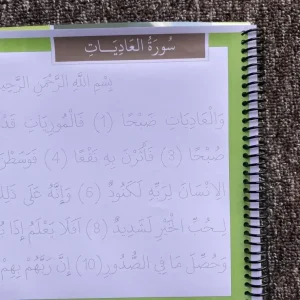 سُورَةُ العَادِيَاتِ
بِسْمِ اللَّهِ الرَّحْمَنِ الرَّحِيمِ
وَالْعَادِيَاتِ ضَبْحًا (1) فَالْمُورِيَاتِ قَدْ
صُبْحًا (3) فَأَثَرْنَ بِهِ نَقْعًا (4) فَوَسَطْنَ
الإِنْسَانَ لِرَبِّهِ لَكَنُودٌ (6) وَإِنَّهُ عَلَى ذَلِكَ
لِحُبِّ الْخَيْرِ لَشَدِيدٌ (8) أَفَلَا يَعْلَمُ إِذَا
وَحُصِّلَ مَا فِي الصُّدُورِ (10) إِنَّ رَبَّهُمْ بِهِمْ